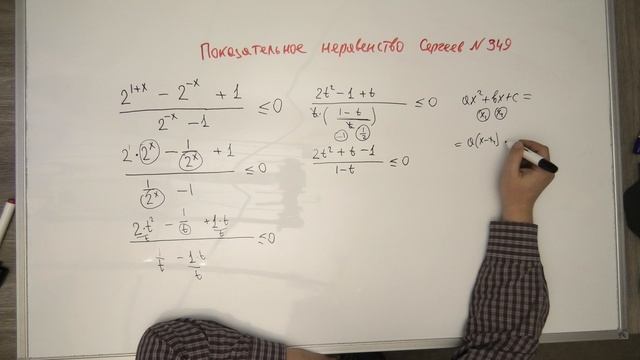 Показательное неравенство Сергеев N 349
(2^{1+x} - 2^{-x} + 1) / (2^{-x} - 1) ≤ 0
(2·2^x - 1/2^x + 1) / (1/2^x - 1) ≤ 0
(2·t²/t - 1/t + 1·t/t) / (1/t - 1·t/t) ≤ 0
(2t² - 1 + t) / (t·((1-t)/t)) ≤ 0
-1 1/2
(2t² + t - 1) / (1-t) ≤ 0
ax² + bx + c =
x₁ x₂
= a(x-x₁)